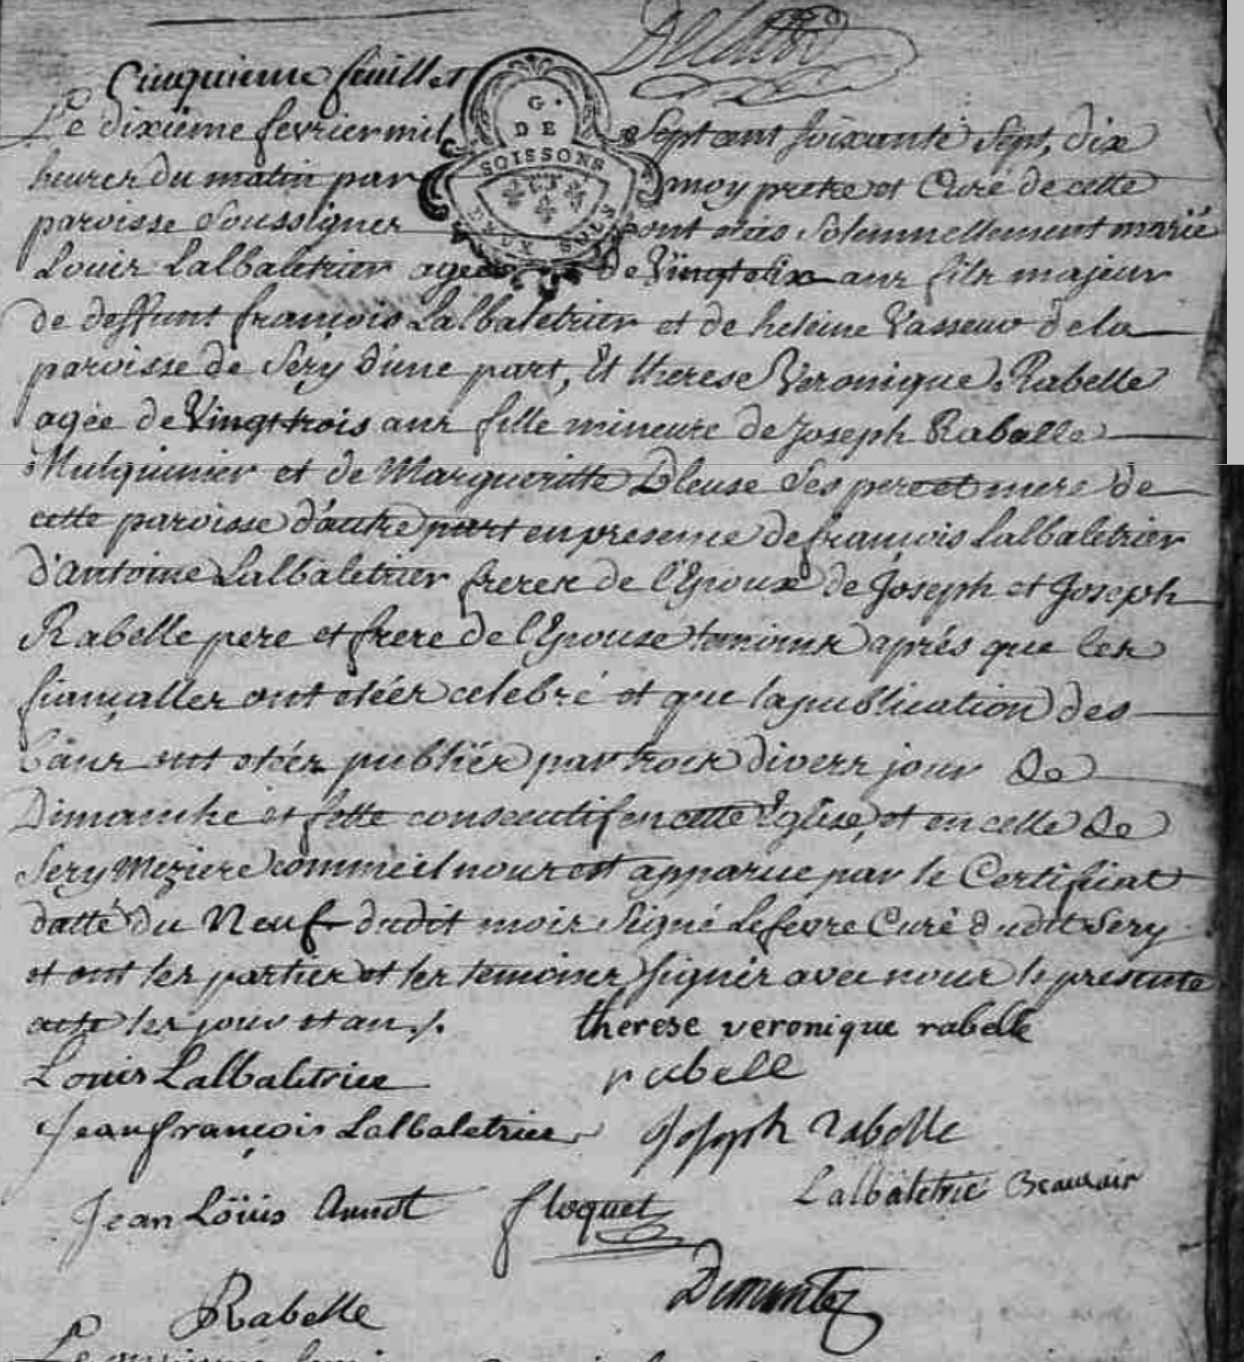 Cinquieme feuillet
G. DE SOISSONS
DEUX SOLS
Le dixième fevrier mil Sept cent soixante Sept, dix
heures du matin par moy pretre et Curé de cette
paroisse Soussigner sont etées Solemnellement marié
Louis Lalbaletrier agée de Vingt six ans fils majeur
de deffunt françois Lalbaletrier et de heleine Vasseur de la
paroisse de Sery d'une part, Et therese Veronique Rabelle
agée de Vingt trois ans fille mineure de Joseph Rabelle
Mulquinier et de Margueritte Bleuse Ses pere et mere de
cette paroisse d'autre part en presence de françois Lalbaletrier
d'antoine Lalbaletrier freres de l'Epoux de Joseph et Joseph
Rabelle pere et frere de l'Epouse temoins après que les
fiançalles ont etées celebré et que la publication des
bans ont etées publiées par trois divers jour de
Dimanche et fette consecutif en cette Eglise, et en celle de
Sery Meziere comme il nous est apparue par le Certifiat
datté du Neuf dudit mois Signé Lefevre Curé dudit Sery
et ont les parties et les temoins signés avec nous le presente
acte les jour et an ./.
therese veronique rabelle
Louis Lalbaletrier
rabelle
Jean françois Lalbaletrier
Joseph rabelle
Lalbaletrie Beauvair
Jean Loüis
floquet
Rabelle